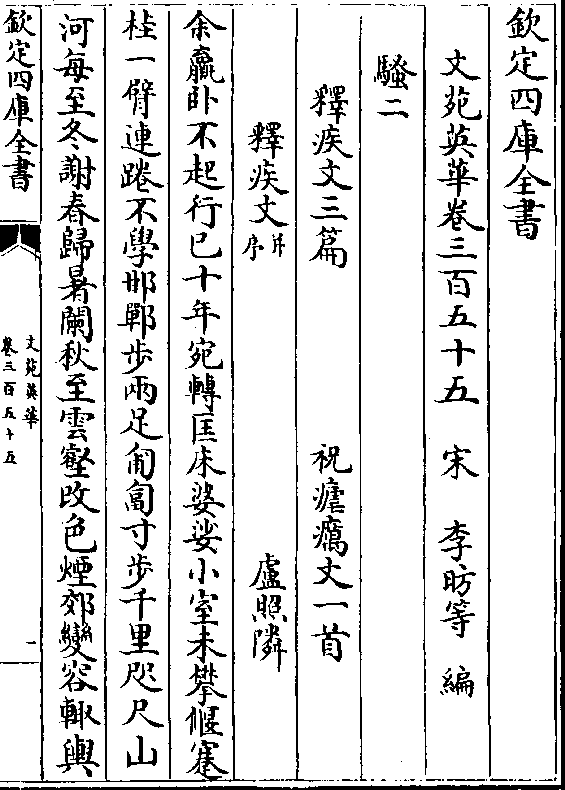 欽定四庫全書
文苑英華卷三百五十五　宋　李昉等　編
騷二
釋疾文三篇　祝瘧癘文一首
釋疾文并序　盧照隣
余羸卧不起行已十年宛轉匡床婆娑小室未攀偃蹇
桂一臂連踡不學邯鄲步兩足匍匐寸步千里咫尺山
河每至冬謝春歸暑闌秋至雲壑改色煙郊變容輙輿
欽定四庫全書
文苑英華
卷三百五十五
一